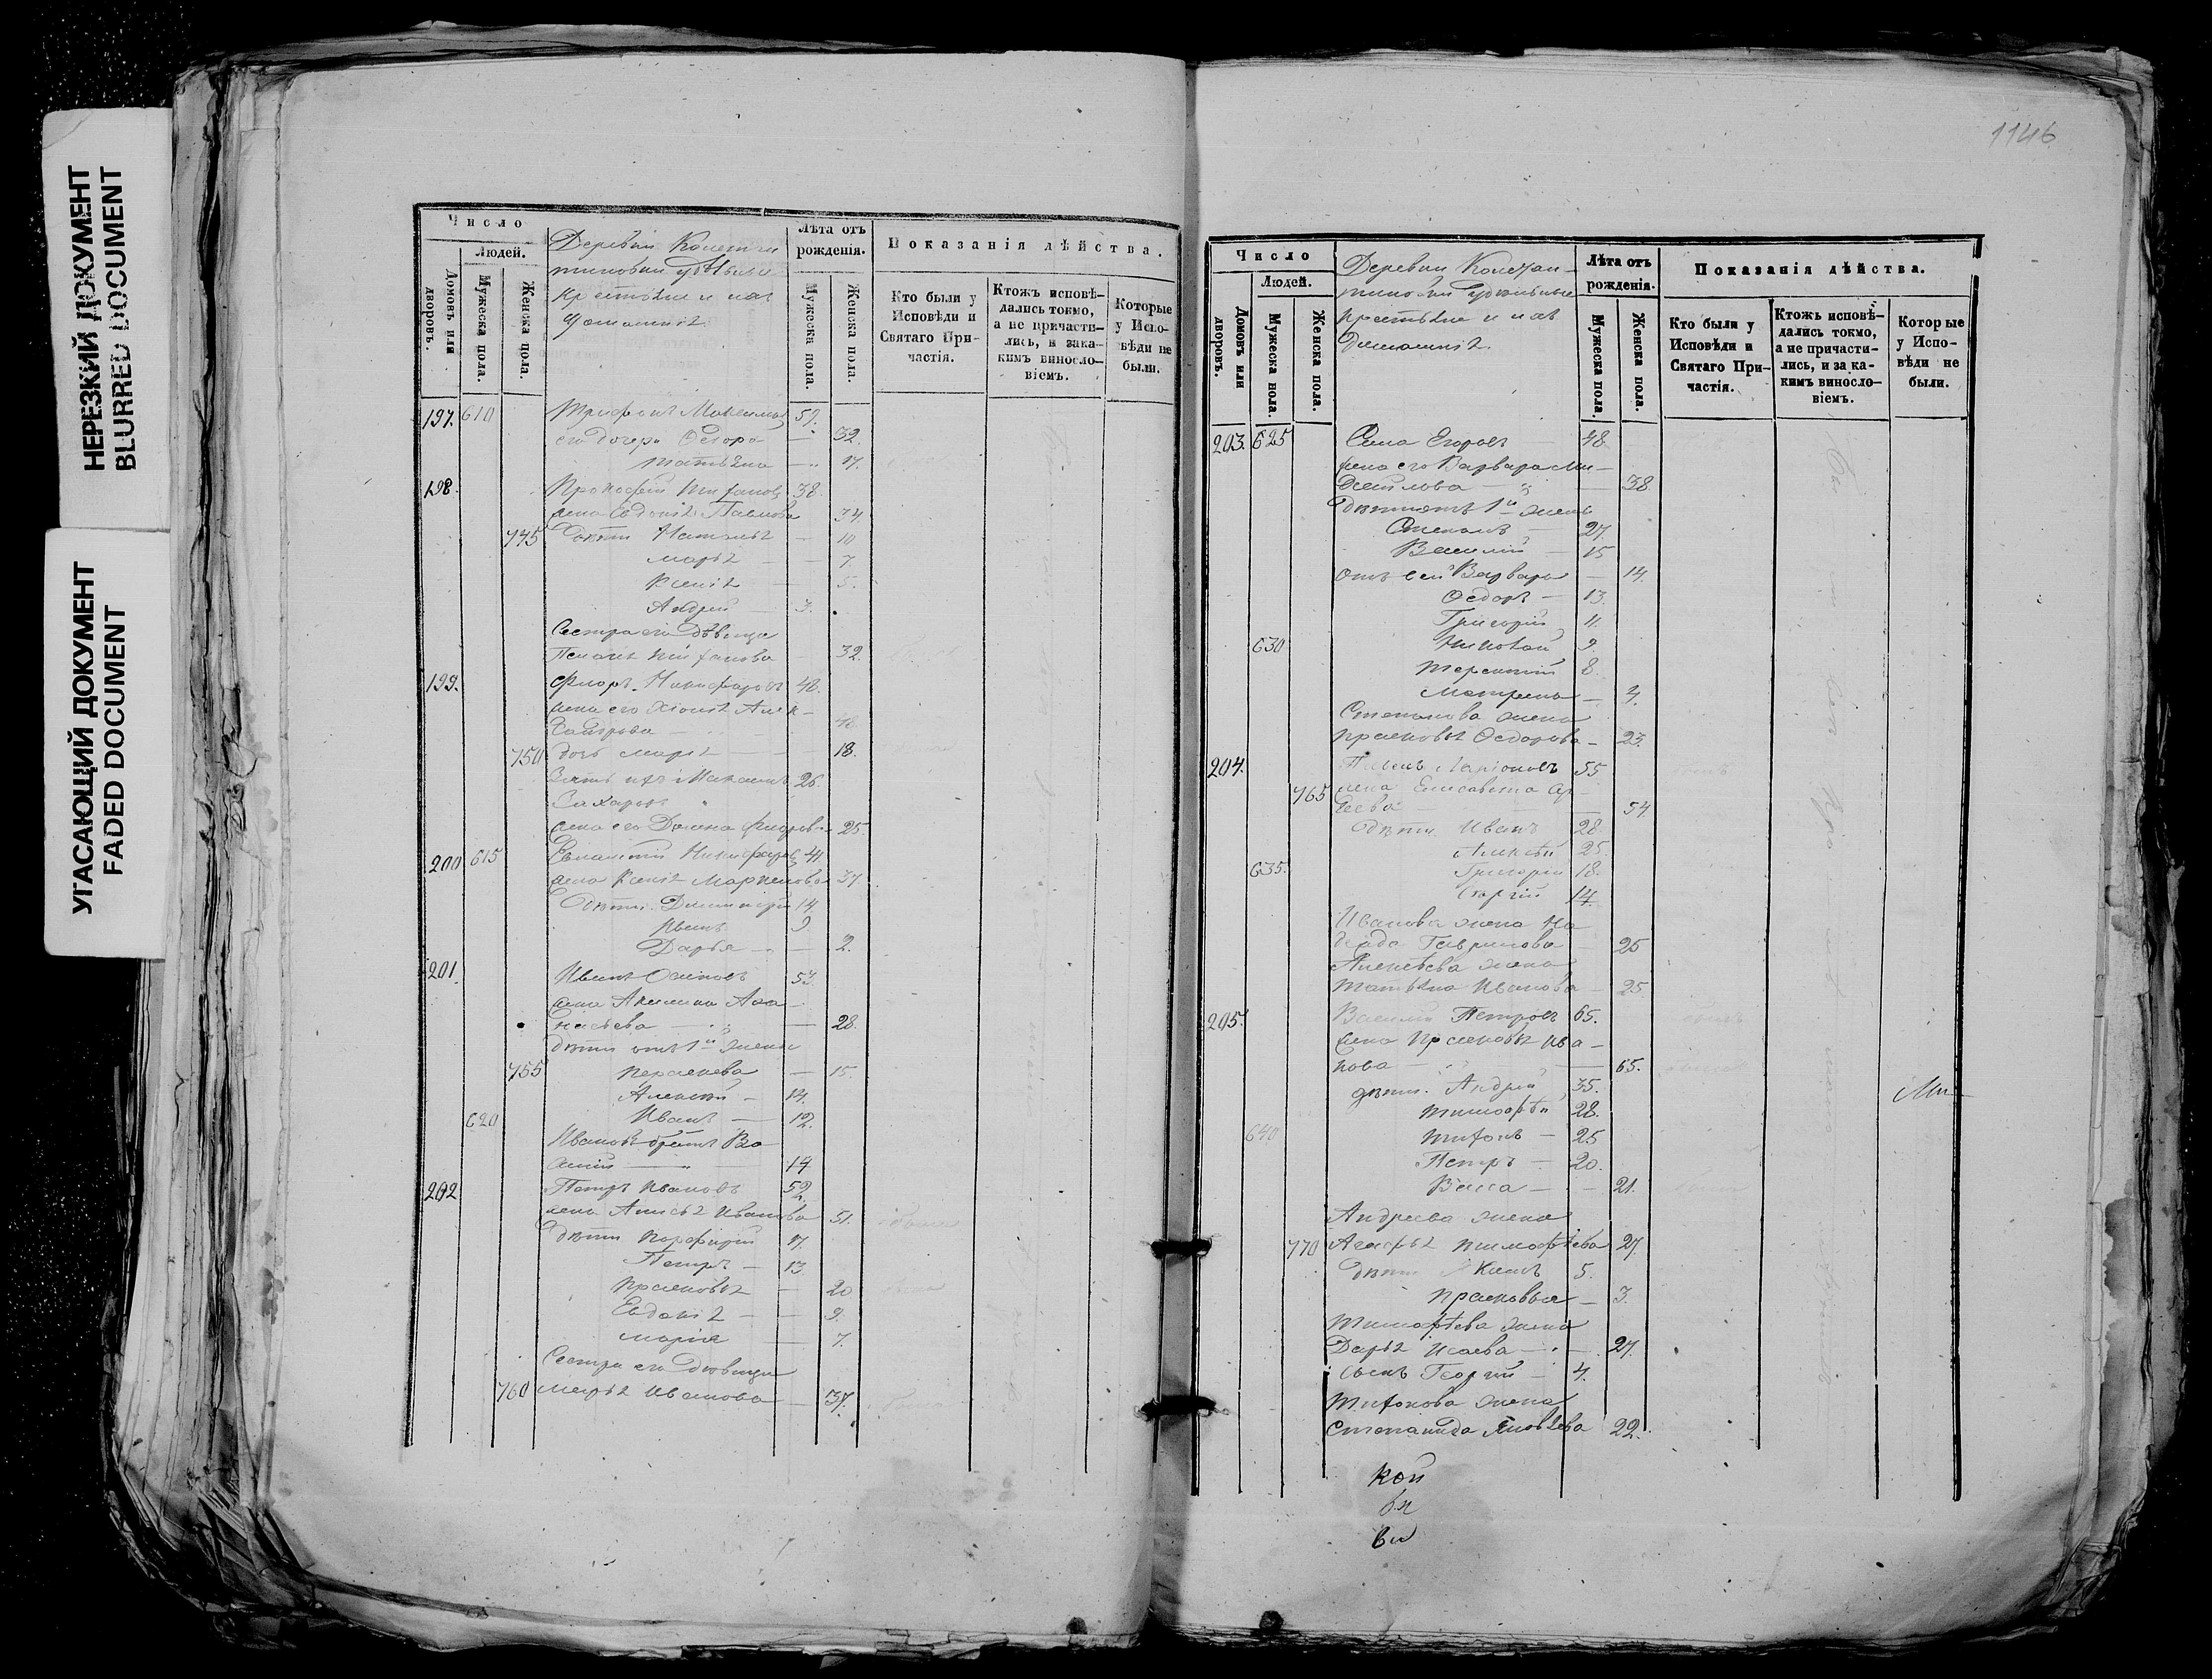 НЕРЕЗКИЙ ДОКУМЕНТ
BLURRED DOCUMENT
УГАСАЮЩИЙ ДОКУМЕНТ
FADED DOCUMENT
Число
Людей.
Домовъ или дворовъ.
Мужеска пола.
Женска пола.
Деревни Констан
тиновки удѣльные
крестьяне и ихъ
домашніе
Лѣта отъ рожденія.
Мужеска пола.
Женска пола.
Показанія дѣйства.
Кто были у Исповѣди и Святаго Причастія.
Ктожъ исповѣдались токмо, а не причастились, и за какимъ винословіемъ.
Которые у Исповѣди не были.
197. 610 Трифонъ Максимовъ 59.
его дочери Ѳедора 32.
Татьяна 17.
198. Прокофій Тихоновъ 38.
жена Евдокія Павлова 34.
745 дѣти Наталья 10
Марья 7.
Ксенія 5.
Андрей 3.
Сестра его дѣвица
Пелагія Тихонова 32.
199. Флоръ Никифоровъ 48.
жена его Хіонія Алек-
48.
750 дочь Марія 18.
Зять ихъ 26.
Захаровъ
жена его Домна Флорова 25.
200 615 Евлампій Никифоровъ 41.
жена Ксенія Маркелова 37.
Дѣти. Димитрій 14.
Иванъ 9
Дарья 2.
201 Иванъ Осиповъ 53.
жена Акилина Аѳа-
насьева 28.
дѣти отъ 1й жены
755 15.
Алексѣй 14.
620 Иванъ 12.
Ивановъ братъ Ва
силій 14
202 Петръ Ивановъ 52.
жена Анисья Иванова 51.
дѣти Порфирій 17.
Петръ 13
Прасковья 20
Евдокія 9.
Марія 7.
Сестра его дѣвица
760 Марья Иванова 37.
1146
Число
Людей.
Домовъ или дворовъ.
Мужеска пола.
Женска пола.
Деревни Констан-
тиновки удѣльные
крестьяне и ихъ
домашніе.
Лѣта отъ рожденія.
Мужеска пола.
Женска пола.
Показанія дѣйства.
Кто были у Исповѣди и Святаго Причастія.
Ктожъ исповѣдались токмо, а не причастились, и за какимъ винословіемъ.
Которые у Исповѣди не были.
203. 625 Егоровъ 48.
жена его Варвара Ми-
хайлова 38
Дѣти отъ 1й жены
Степанъ 27.
Василій 15
отъ сей Варвары 14.
Ѳедоръ 13.
Григорій 11.
630 Николай 9.
Терентій 8.
Матрена 4.
Степанова жена
Прасковья Ѳедорова 23.
204. Ларіоновъ 55
765 жена Елисавета Ар-
54
дѣти Иванъ 28.
Алексѣй 25.
635. Григорій 18.
Сергій 14.
Иванова жена На
дежда Гаврилова 25
Алексѣева жена
Татьяна Иванова 25
205. Василій Петровъ 65.
жена Прасковья Ива-
нова 65.
дѣти. Андрей 35.
Тимоѳей 28.
640 Тихонъ 25
Петръ 20.
Васса 21.
Андреева жена
770 Агафья Тимоѳѣева 27.
дѣти 5.
Прасковья 3.
Тимоѳѣева жена
Дарья Исаева 27.
сынъ Георгій 4.
Тихонова жена
Степанида Яковлева 22.
Ми
кой
бя
ви